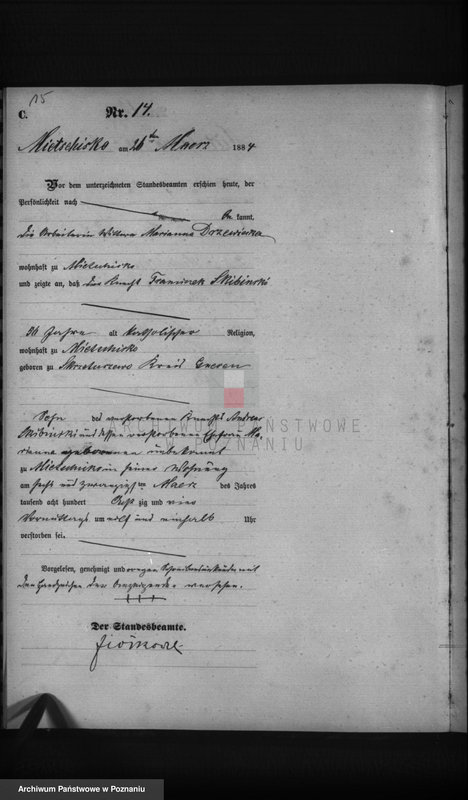 15
C.
Nr. 14.
Mietschisko am 26ten Maerz 1884
Vor dem unterzeichneten Standesbeamten erschien heute, der
Persönlichkeit nach
be kannt,
die Arbeiterin Wittwe Marianna Drzewiecka
wohnhaft zu Mietschisko
und zeigte an, daß der Knecht Franciszek Skibinski
Jahre alt katholischer Religion,
wohnhaft zu Mietschisko
geboren zu Kreis Gnesen
Sohn des verstorbenen Knechts Andreas
Skibinski und dessen verstorbene Ehefrau Ma-
rianna geborenen unbekannt
zu Mietschisko in seiner Wohnung
am sechs und zwanzigsten Maerz des Jahres
tausend acht hundert acht zig und vier
Vormittags um elf und einhalb Uhr
verstorben sei.
Vorgelesen, genehmigt und wegen Schreibensunkunde mit
den Handzeichen der Anzeigenden versehen.
+++
Der Standesbeamte.
ARCHIWUM PAŃSTWOWE
W POZNANIU
Archiwum Państwowe w Poznaniu